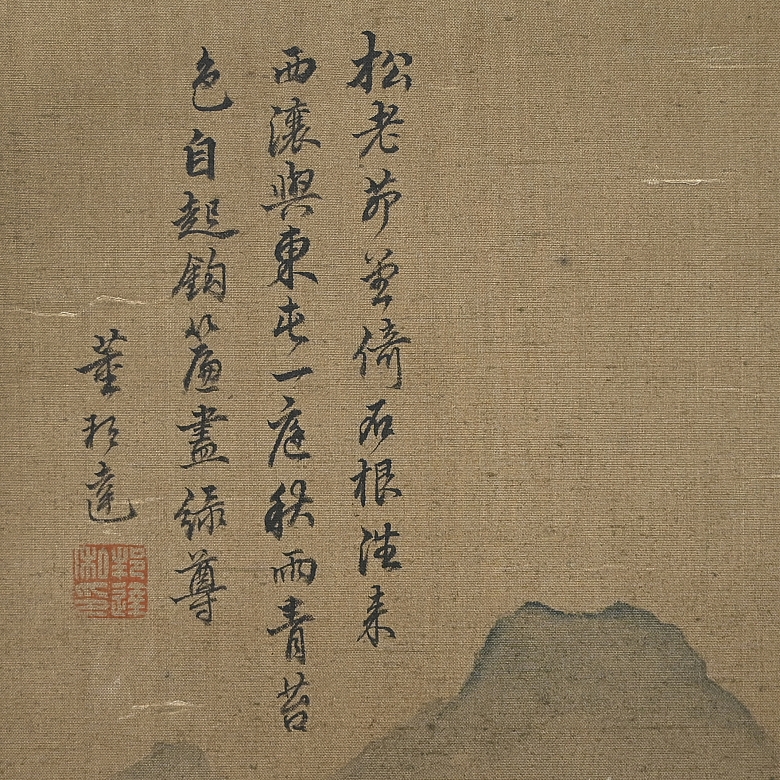 松老茆堂倚石根往来
西瀼與東屯一庭秋雨青苔
色自起鈎簾盡綠尊
董邦達